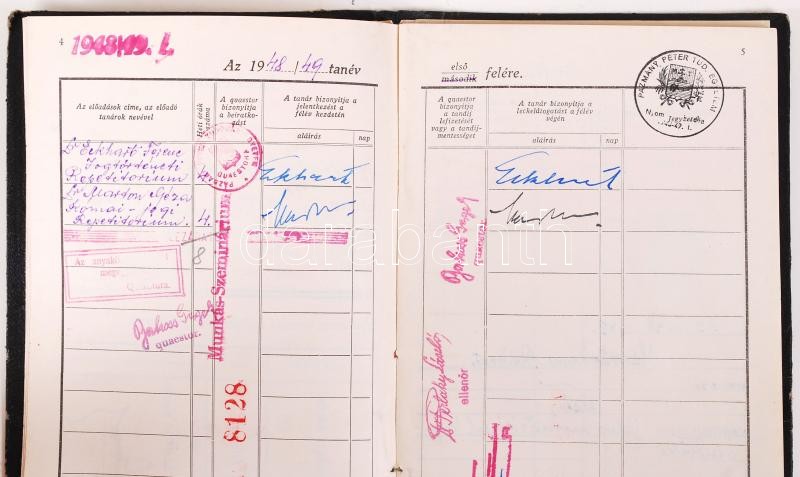 4
1948/49. I.
Az 1948/49 tanév
Az előadások címe, az előadó
tanárok nevével
Heti órák
száma
A quaestor
bizonyítja
a beiratko-
zást
A tanár bizonyítja a
jelentkezést a
félév kezdetén
aláírás
nap
Dr Eckhart Ferenc
Jogtörténeti
Repetitorium 4.
Dr Marton Géza
Római-jogi
Repetitorium. 4.
Eckhart
Az
Quaestura.
8
quaestor.
Munkás-Szeminárium
8128
5
első
második félére.
A quaestor
bizonyítja
a tandíj
lefizetését
vagy a tandíj-
mentességet
A tanár bizonyítja a
leckelátogatást a félév
végén
aláírás
nap
Eckhart
PÁZMÁNY PÉTER TUD. EGYETEM
quaestor.
ellenőr
darabanth